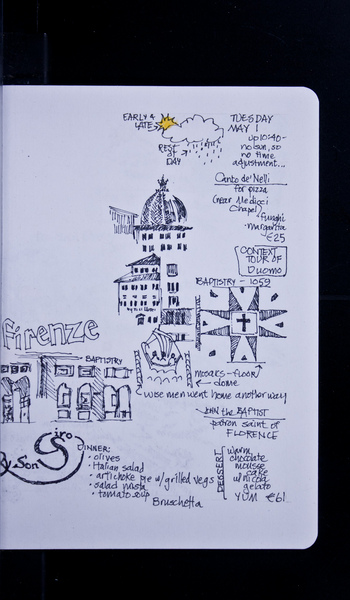 EARLY &
LATE
REST
OF
DAY
TUESDAY
MAY 1
up 10:40-
no sun, so
no time
adjustment...
Canto de' Nelli
for pizza
(near Medicci
Chapel)
funghi
margarita
€25
CONTEXT
TOUR OF
Duomo
BAPTISTRY - 1059
Firenze
BAPTISTRY
mosaics - floor
dome
wise men went home another way
JOHN the BAPTIST
patron saint of
FLORENCE
Giro
By Son
DINNER:
• olives
• Italian salad
• artichoke pie w/ grilled vegs
• salad mista
• tomato soup
Bruschetta
DESSERT
warm
chocolate
mousse
cake
gelato
YUM €61